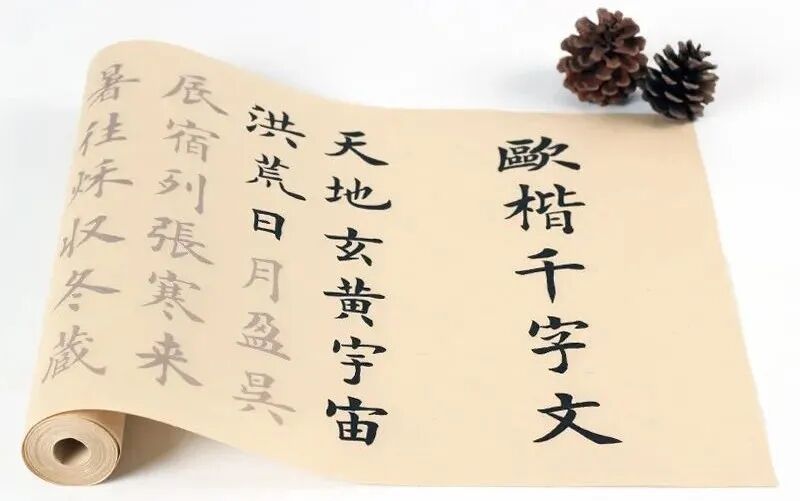 歐楷千字文
天地玄黃宇宙
洪荒日月盈昃
辰宿列張寒来
暑往秌収冬蔵